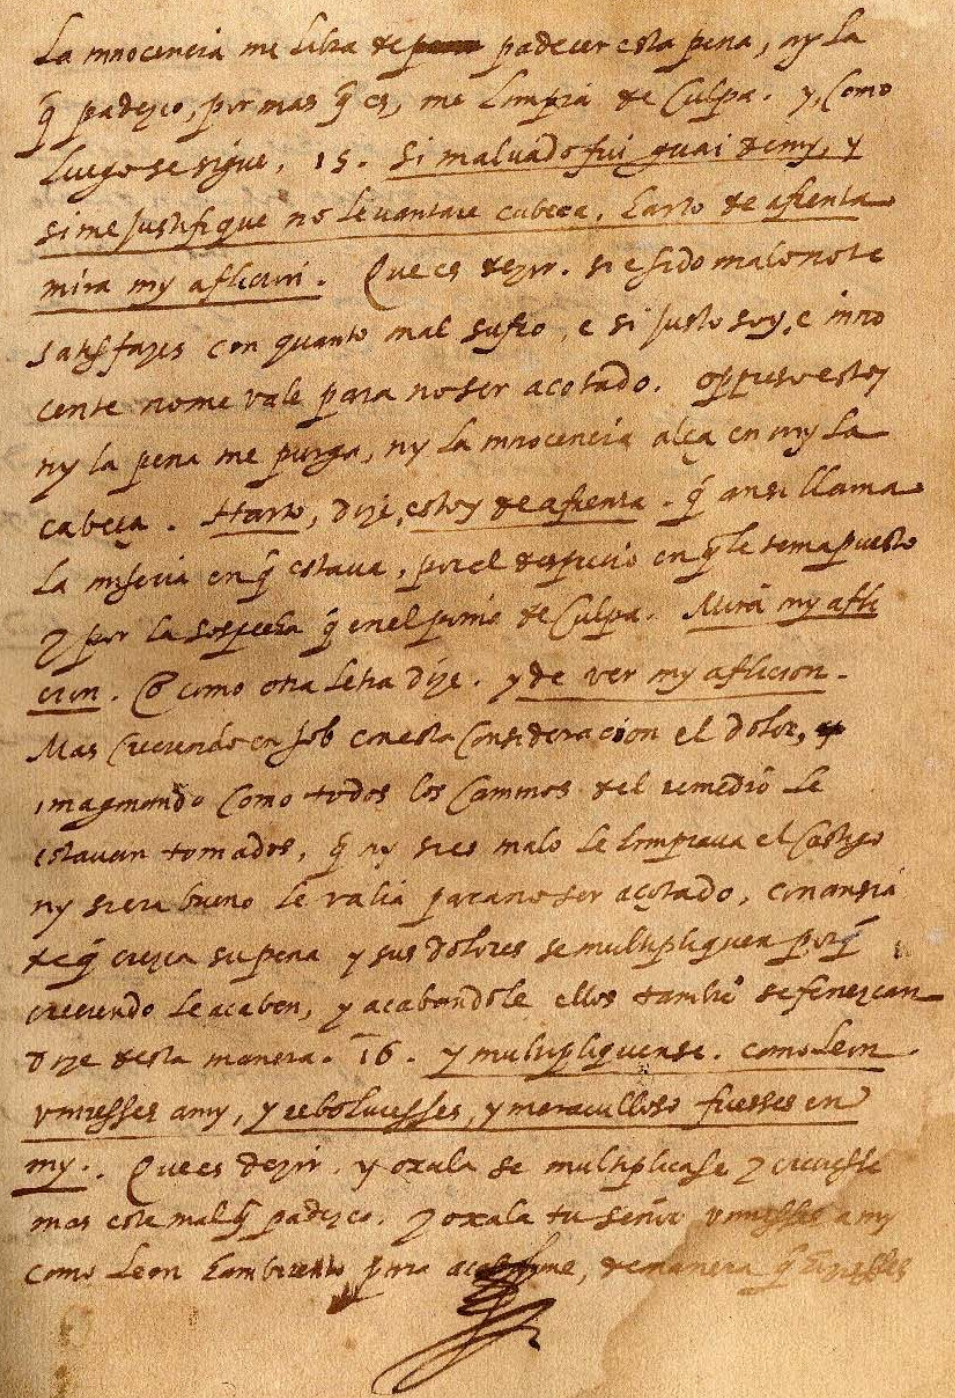 La innocencia me libra de padecer esta pena, ny la
q̃ padezco, por mas q̃ es, me limpia de culpa. y, como
luego se sigue, 15. Si malvado fui guai de my, y
si me justifique no levantare cabeça, harto de afrenta
mira my aflicion. Que es dezir. si e sido malo no te
satisfazes con quanto mal sufro, e si justo soy, e inno
cente no me vale para no ser açotado. estoy
ny la pena me purga, ny la innocencia alça en my la
cabeça. Harto, dize, estoy de afrenta. q̃ ansi llama
la miseria en q̃ estava, por el desprecio en q̃ le tenia puesto
y por la sospecha q̃ en el ponia de culpa. Mira my afli
cion. O como otra letra dize. y de ver my aflicion.
Mas creciendo en Job con esta consideracion el dolor,
imaginando como todos los caminos del remedio le
estavan tomados, q̃ ny si es malo le limpiava el castigo
ny si era bueno le valia para no ser açotado, con ansia
de q̃ crezca su pena y sus dolores se multipliquen porq̃
creciendo le acaben, y acabandole ellos tambiē se fenezcan
dize desta manera. 16. y multipliquense. como leon
viniesses a my, y rebolviesses, y meravilloso fuesses en
my. Que es dezir. y oxala se multiplicase y creciesse
mas este mal q̃ padezco. y oxala tu señor viniesses a my
como leon hambriento para acabarme, de manera q̃ hiziesses